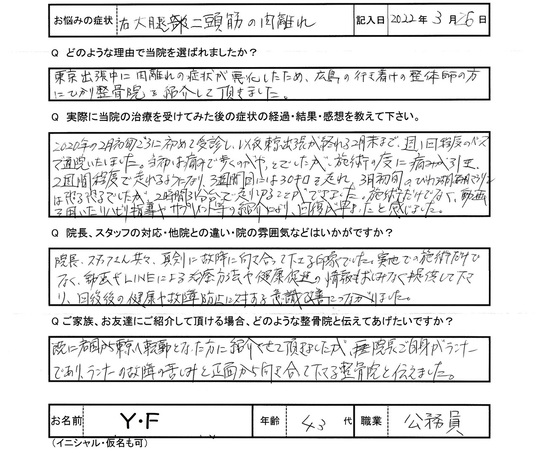 お悩みの症状 右大腿二頭筋の肉離れ 記入日 2022年 3月 26日
Q どのような理由で当院を選ばれましたか？
東京出張中に肉離れの症状が悪化したため、広島の行き着けの整体師の方
にひかり整骨院を紹介して頂きました。
Q 実際に当院の治療を受けてみた後の症状の経過・結果・感想を教えて下さい。
2020年の2月初旬ごろに初めて受診し、以後東京出張が終わる2月末まで、週1回程度のペース
で通院いたしました。当初は痛みで歩くのがやっとでしたが、施術の度に痛みが引き、
2週間程度で走れるようになり、3週間後には30キロ走れ、3月初旬のびわ湖毎日マラソン
は走ることができました。施術だけでなく、動画
Q 院長、スタッフの対応・他院との違い・院の雰囲気などはいかがですか？
院長、スタッフさん共々、真剣に故障に向き合って下さる印象でした。実地での施術だけで
なく、動画やLINEによる対処方法や健康促進の情報も惜しみなく提供して下さ
り、回復後の健康や故障防止に対する意識改善につながりました。
Q ご家族、お友達にご紹介して頂ける場合、どのような整骨院と伝えてあげたいですか？
既に広島から東京へ転勤となった方に紹介させて頂きましたが、院長ご自身がランナー
であり、ランナーの故障の苦しみと正面から向き合って下さる整骨院と伝えました。
お名前 Y・F 年齢 43代 職業 公務員
(イニシャル・仮名も可)